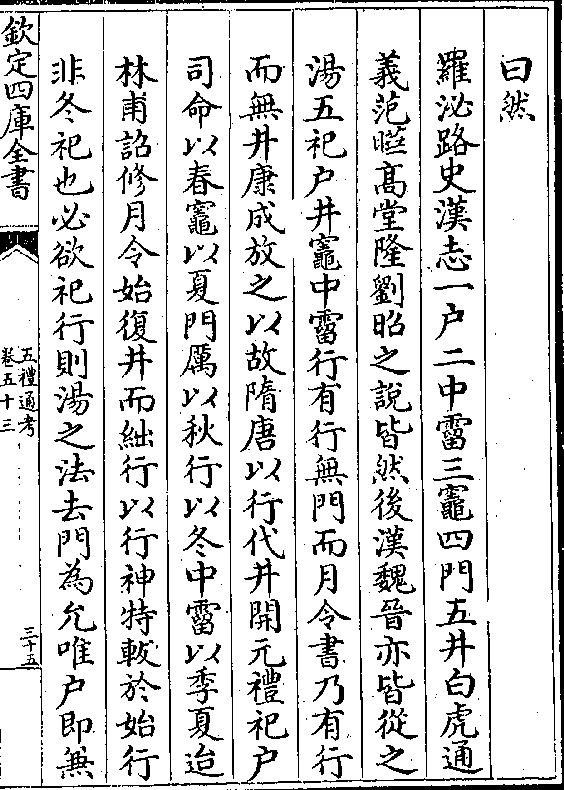 曰然
羅泌路史漢志一户二中霤三竈四門五井白虎通
義范㬢髙堂隆劉昭之說皆然後漢魏晉亦皆從之
湯五祀户井竈中霤行有行無門而月令書乃有行
而無井康成放之以故隋唐以行代井開元禮祀户
司命以春竈以夏門厲以秋行以冬中霤以季夏迨
林甫詔修月令始復井而絀行以行神特軷於始行
非冬祀也必欲祀行則湯之法去門為允唯户即無
欽定四庫全書
五禮通考
卷五十三
三十五